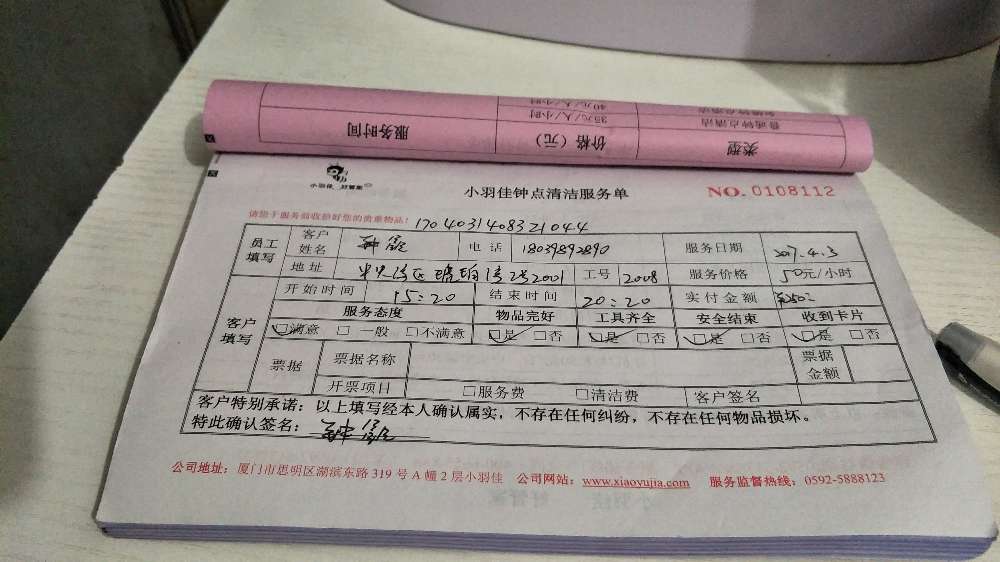 服务时间 价格（元） 类型
35元/人/小时 普通钟点清洁
40元/人/小时
小羽佳 好管家
小羽佳钟点清洁服务单 NO.0108112
请您于服务前收拾好您的贵重物品！ 170403140832104
员工填写 客户姓名 电话 18039892890 服务日期 2017.4.3
地址 2001 工号 2008 服务价格 50元/小时
客户填写 开始时间 15:20 结束时间 20:20 实付金额
服务态度 物品完好 工具齐全 安全结束 收到卡片
☑满意 □一般 □不满意 ☑是 □否 ☑是 □否 ☑是 □否 ☑是 □否
票据 票据名称 票据金额
开票项目 □服务费 □清洁费 客户签名
客户特别承诺：以上填写经本人确认属实，不存在任何纠纷，不存在任何物品损坏。
特此确认签名：
公司地址：厦门市思明区湖滨东路 319 号 A 幢 2 层小羽佳 公司网站：www.xiaoyujia.com 服务监督热线：0592-5888123